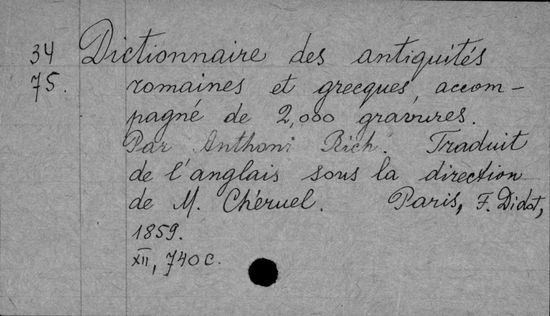 34 Dictionnaire des antiquités
75. romaines et grecques, accom-
pagné de 2,000 gravures.
Par Anthoni Rich. Traduit
de l'anglais sous la direction
de M. Chéruel. Paris, F. Didot,
1859.
XII, 740 c.